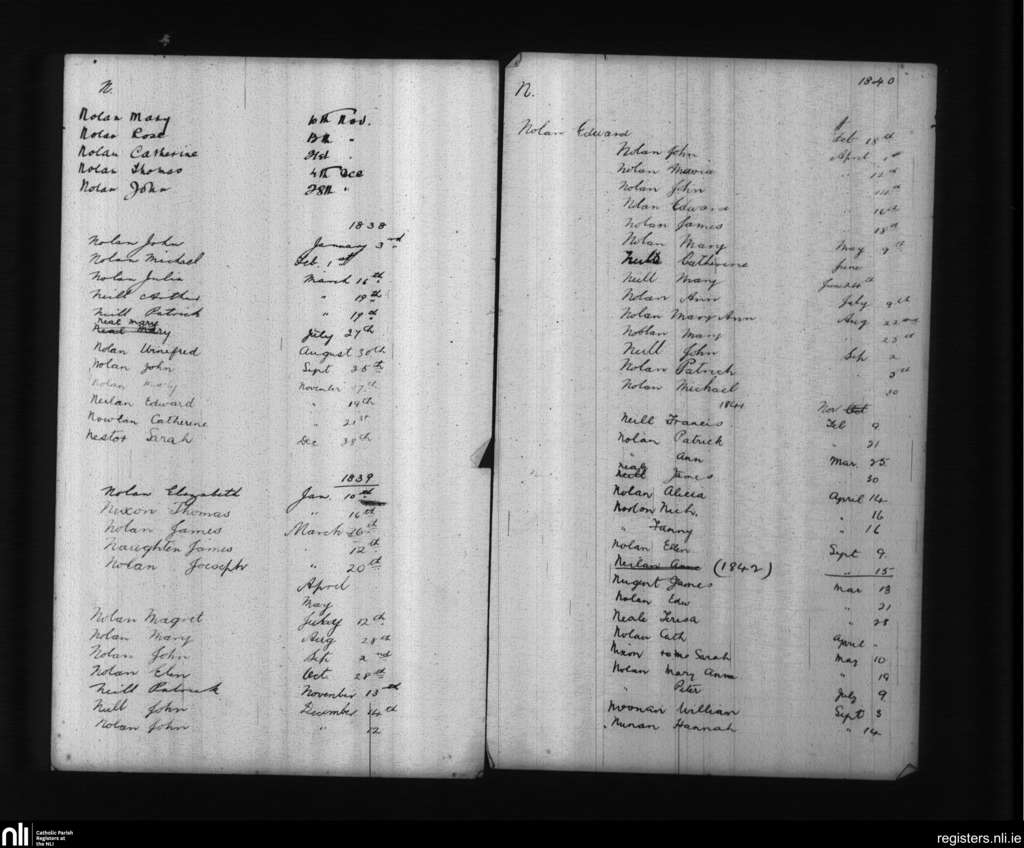 N.
Nolan Mary 10th Nov.
Nolan Rose 13th "
Nolan Catherine 21st "
Nolan Thomas 4th Dec
Nolan John 28th "
1838
Nolan John January 3rd
Nolan Michael Feb. 1st
Nolan Julia March 16th
Neill Arthur " 19th
Neill Patrick " 19th
Neal Mary
Neal Mary July 27th
Nolan Winefred August 30th
Nolan John Sept 25th
Nolan Mary November 17th
Neilan Edward " 19th
Nowlan Catherine " 21st
Nestor Sarah Dec 38th
1839
Nolan Elizabeth Jan. 10th
Nixon Thomas " 16th
Nolan James March 26th
Naughten James " 12th
Nolan Joeseph " 20th
April
May
Nolan Magret July 12th
Nolan Mary Aug 28th
Nolan John Sept 2nd
Nolan Elen Oct 28th
Neill Patrick November 13th
Neill John December 14th
Nolan John " 12
N. 1840
Nolan Edward Feb 18th
Nolan John April 1st
Nolan Maria " 12th
Nolan John 14th
Nolan Edward " 16th
Nolan James 18th
Nolan Mary May 9th
Neill Catherine June
Neill Mary June 24th
Nolan Ann July 9th
Nolan Mary Ann Aug 22nd
Nolan Mary " 25th
Neill John Sep 2
Nolan Patrick " 3rd
Nolan Michael 30
1841 Nov
Neill Francis Feb 9
Nolan Patrick " 21
" Ann Mar. 25
Neal
Neill James 30
Nolan Alicia April 14
Nolan Mich. " 16
" Fanny " 16
Nolan Ellen Sept 9
Neilan Anne (1842) " 15
Nugent James Mar 13
Nolan Edw " 21
Neale Teresa " 28
Nolan Cath April "
Nixon Sarah May 10
Nolan Mary Anne " 19
" Peter July 9
Noonan William Sept 3
Nunan Hannah " 14
nli
Catholic Parish
Registers at
the NLI
registers.nli.ie